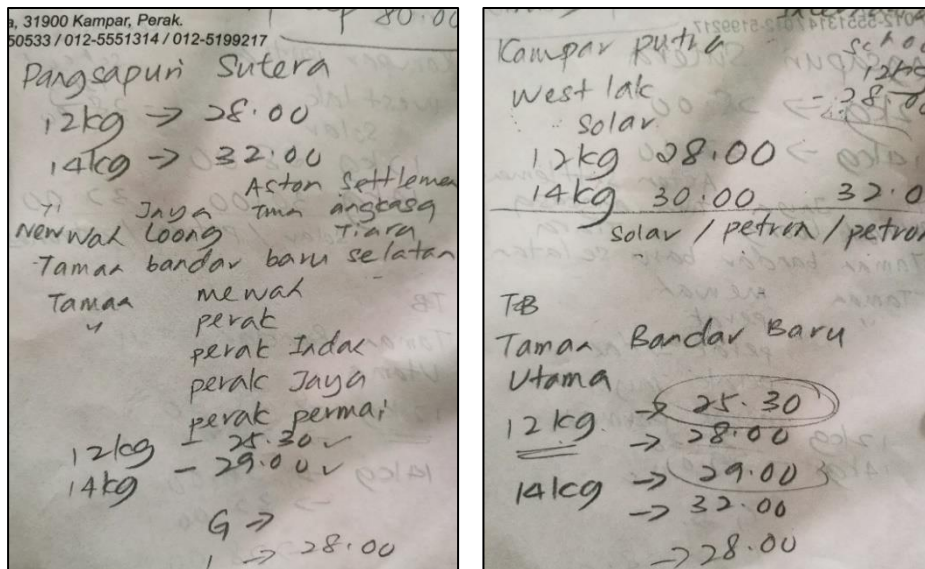 , 31900 Kampar, Perak.
50533 / 012-5551314 / 012-5199217
80.00
Pangsapuri Sutera
12kg -> 28.00
14kg -> 32.00
Aston Settlemen
Jaya Tmn angkasa
New Wah Loong Tiara
Taman bandar baru selatan
Taman mewah
" perak
perak Indah
perak Jaya
perak permai
12kg - 25.30 ✓
14kg - 29.00 ✓
G ->
-> 28.00
Kampar Putra
12kg
West lak - 28.00
Solar
12kg 28.00
14kg 30.00 32.0
Solar / petron / petron
TBB
Taman Bandar Baru
Utama
12kg -> 25.30
-> 28.00
14kg -> 29.00
-> 32.00
-> 28.00